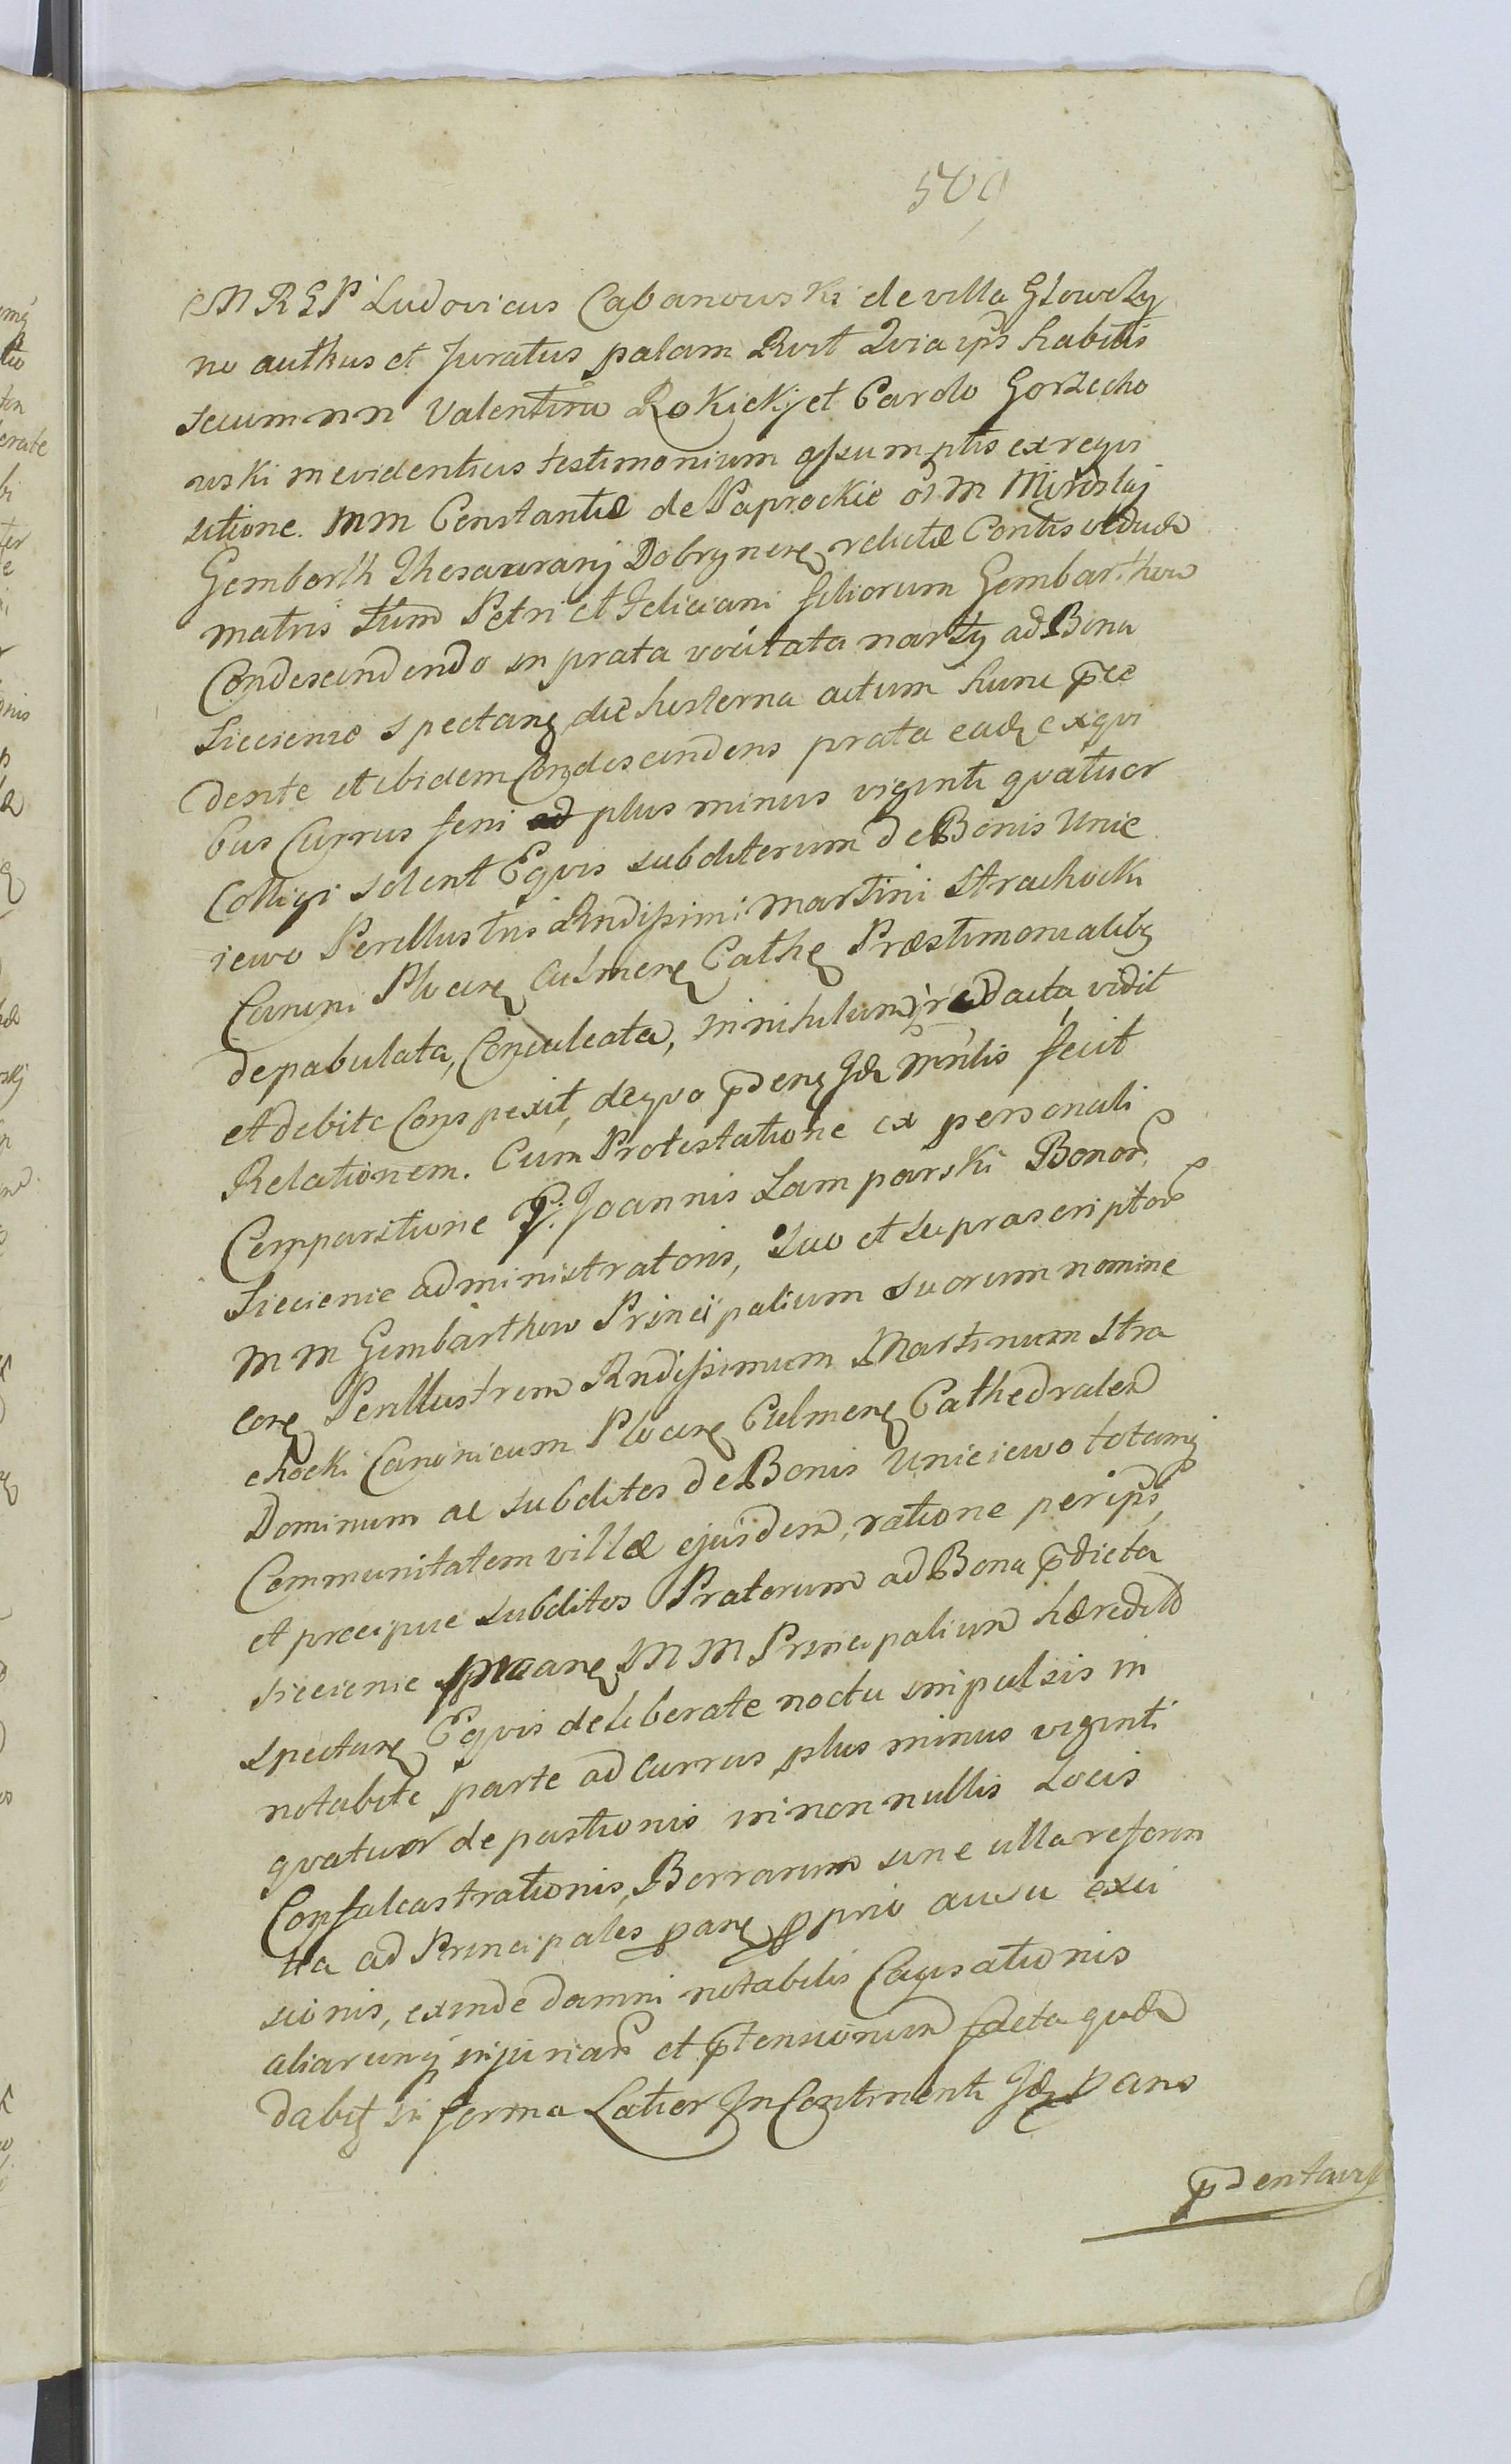 509
M R S P Ludovicus Cabanowski de villa Głowczy
no authus et Juratus palam Rvit Qvia ips habitis
secum nn Valentino Rokicky et Carolo Gorzecho
wski in evidentius testimonium assumptis ex reqvi
sitione. MM Constantiæ de Paprockie ol M Mirosłaj
Gembarth Thesaurarij Dobrynens relictæ Contis viduæ
matris tum Petri et Feliciani filiorum Gembarthow
Condescendendo in prata vocitata narty ad Bona
Siecienie spectan die hesterna actum hunc præ
dente et ibidem Condescendens prata ead ex qvi
bus Currus feni ad plus minus viginti qvatuor
Colligi solent Eqvis subditorum de Bonis Unie
iewo Perillustris Rndissimi Martini Strachocki
Canoni Plocen Culmen Cathe Præstimonialibq
depabulata, Conculcata, in nihilum redacta vidit
et debite Conspexit, de qvo præns Jdem mnlis fecit
Relationem. Cum Protestatione ex personali
Comparitione G. Joannis Lamparski Bonor
Siecienie administratoris, suo et suprascriptor
MM Gembarthow Principalium suorum nomine
con Perillustrem Rndissimum Martinum Stra
chocki Canonicum Plocen Culmen Cathedralem
Dominum ac subditos de Bonis Unieiewo totamq
Communitatem villæ ejusdem, ratione per ips
et præcipue subditos Pratorum ad Bona prædicta
siecienie MM Principalium hæredit
spectan Eqvis deliberate noctu impulsis in
notabili parte ad Currus plus minus viginti
qvatuor depastionis in non nullis Locis
Confalcastrationis, Borrarum sine ulla reform
tia ad Principales proprio ausu exci
sionis, exinde damni notabilis Causationis
aliarumq injuriar et prætensionum
dabit in forma Latior In Continenti Jd pans